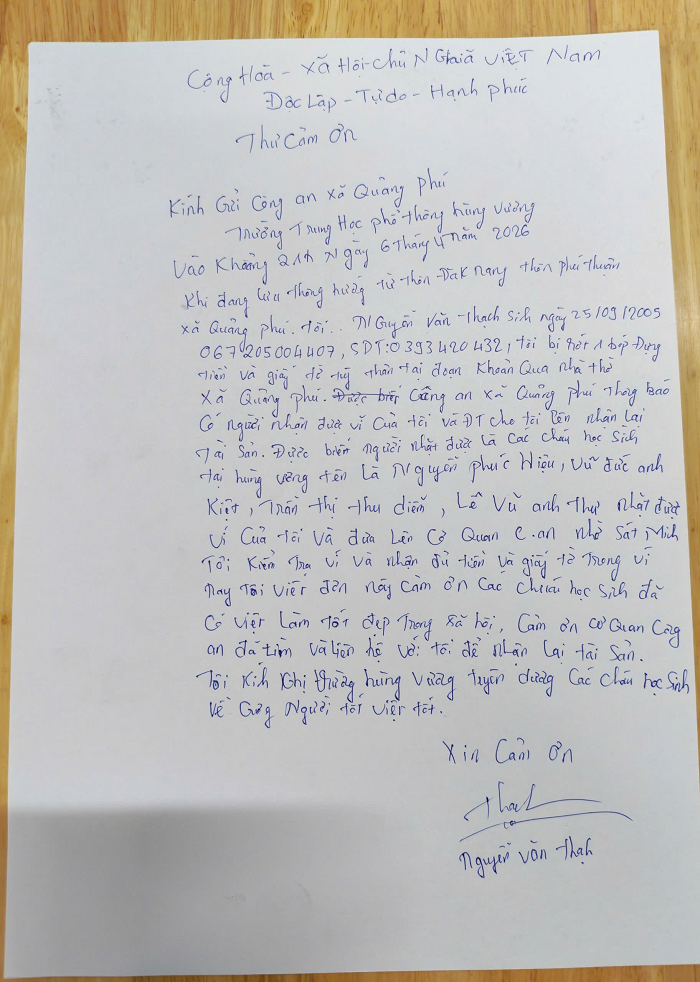 Cộng Hoà - Xã Hội - chủ Nghĩa việt Nam
Độc Lập - Tự do - Hạnh phúc
Thư Cảm ơn
Kính Gửi Công an xã Quảng phú
Trường Trung Học phổ thông hùng vương
Vào Khoảng 21h Ngày 6 tháng 4 năm 2026
Khi đang lưu thông hướng từ thôn Đak nang thôn phú thuận
xã Quảng phú. tôi.. Nguyễn văn thạch Sinh ngày 25/09/2005
067205004407, SDT:0393420432, tôi bị rớt 1 bóp Đựng
tiền và giấy tờ tuỳ thân tại đoạn Khoản Qua nhà thờ
xã Quảng phú. Được biết Công an xã Quảng phú thông báo
Có người nhặt được ví Của tôi và ĐT cho tôi lên nhận lại
Tài Sản. Được biết người nhặt được là các cháu học Sinh
tại hùng vương tên là Nguyễn phúc Hiệu, vũ đức anh
Kiệt, Trần thị thu diễm, Lê Vũ anh thư nhặt được
ví Của tôi và đưa lên Cơ Quan C.an nhờ Sát Minh
Tôi Kiểm Tra ví và nhận đủ tiền và giấy tờ trong ví
nay tôi viết đơn này cảm ơn các cháu học Sinh đã
Có việt làm tốt đẹp trong xã hội, Cảm ơn cơ Quan Công
an đã tìm và liên hệ với tôi để nhận lại tài Sản.
Tôi Kính nghị trường hùng vương tuyên dương Các cháu học Sinh
về Gương Người tốt việt tốt.
Xin Cảm ơn
Thạch
Nguyễn văn thạch